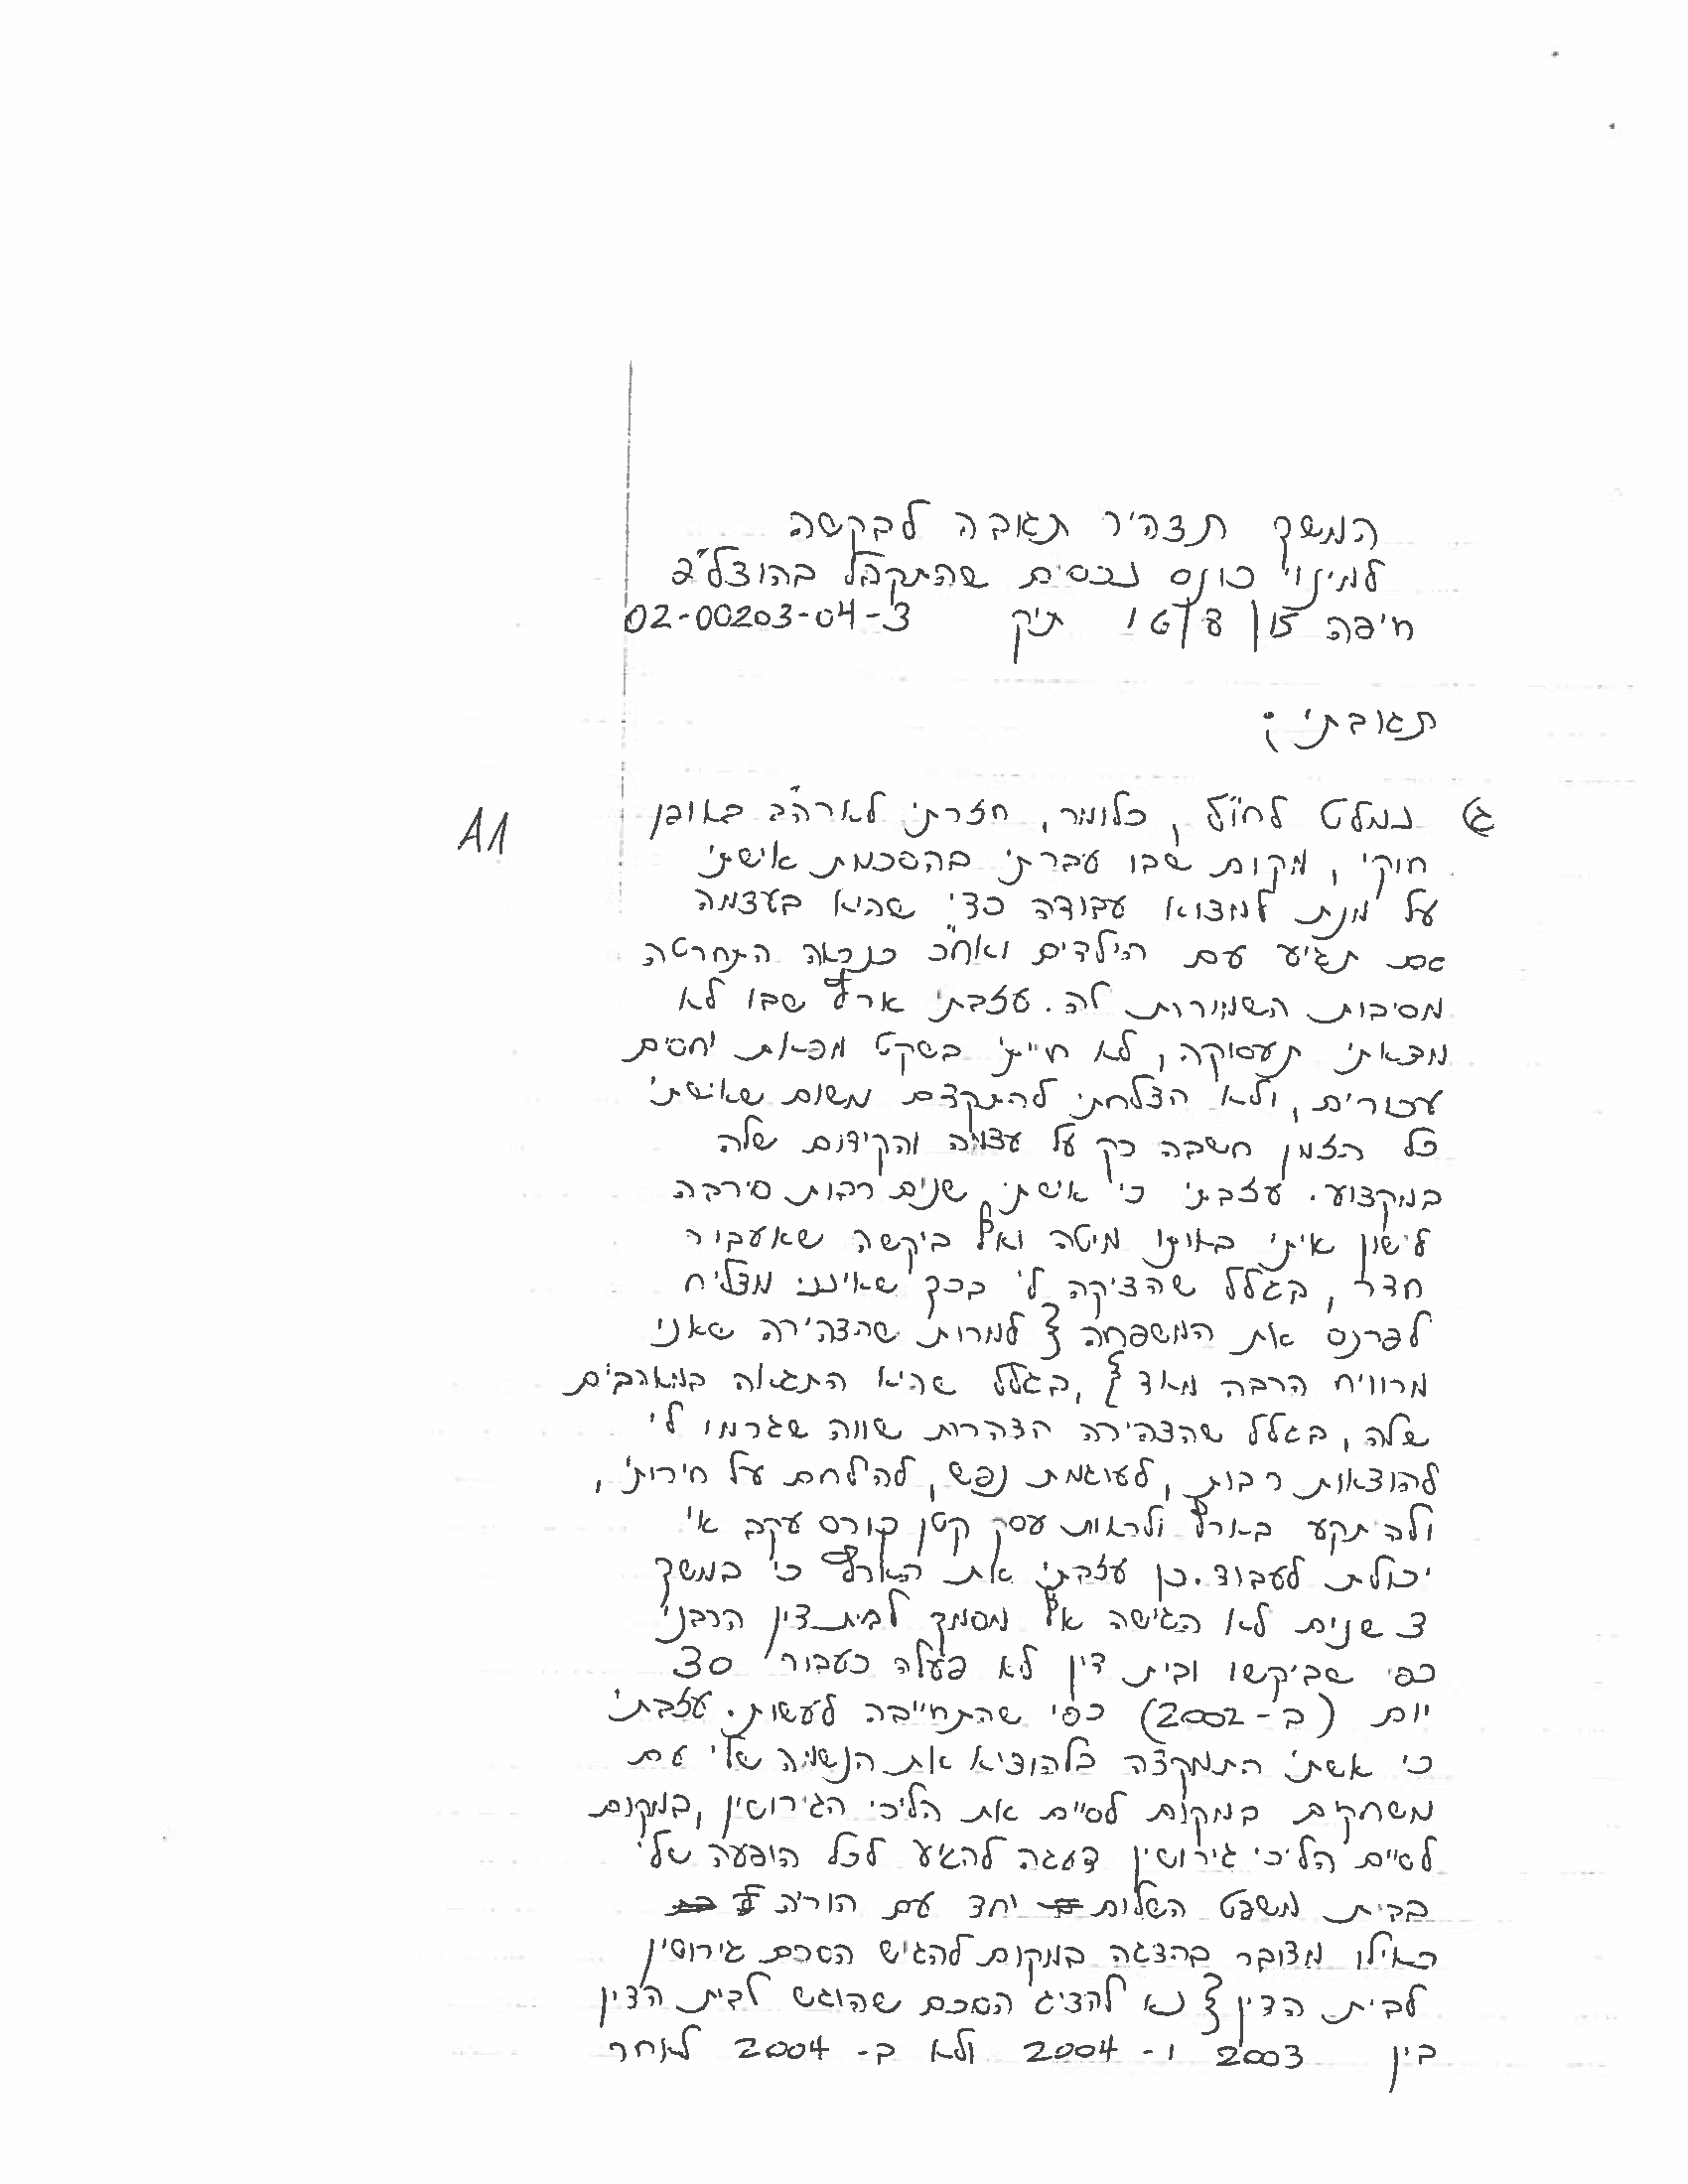 המשך תצהיר תגובה לבקשה
למינוי כונס נכסים שהתקבל בהוצל"פ
חיפה תיק 02-00203-04-3
תגובתי:
נמלט לחו"ל, כלומר, חזרתי לארה"ב באופן
A1
חוקי, מקום שבו עברתי בהסכמת אישתי
על מנת למצוא עבודה כדי שהיא בעצמה
גם תגיע עם הילדים ואח"כ כנראה התחרטה
מסיבות השמורות לה. עזבתי ארץ שבו לא
מצאתי תעסוקה, לא חייתי בשקט מפאת יחסים
עכורים, ולא הצלחתי להתקדם משום שאישתי
כל הזמן חשבה רק על עצמה והקידום שלה
במקצוע. עזבתי כי אישתי שנים רבות סירבה
לישון איתי באותו מיטה ואף ביקשה שאעבור
חדר, בגלל שהציקה לי בכך שאינני מצליח
לפרנס את המשפחה { למרות שהצהירה שאני
מרוויח הרבה מאוד }, בגלל שהיא התגאה
שלה, בגלל שהצהירה הצהרות שווא שגרמו לי
להוצאות רבות, לעוגמת נפש, להילחם על חירותי,
ולהיתקע בארץ ולראות עסק קטן קורס עקב אי
יכולת לעבוד. כן עזבתי את הארץ כי במשך
3 שנים לא הגישה אף מסמך לבית דין הרבני
כפי שביקשו ובית דין לא פעלה כעבור 30
יום (ב-2002) כפי שהתחייבה לעשות. עזבתי
כי אשתי התמקדה בלהוציא את הנשמה שלי עם
משחקים במקום לסיים את הליכי הגירושין, במקום
לסיים הליכי גירושין דאגה להגיע לכל הופעה שלי
בבית משפט השלום יחד עם הוריה
כאילו מדובר בהצגה במקום להגיש הסכם גירושין
לבית הדין { נא להציג הסכם שהוגש לבית הדין
בין 2003 ו-2004 ולא ב-2004 לאחר